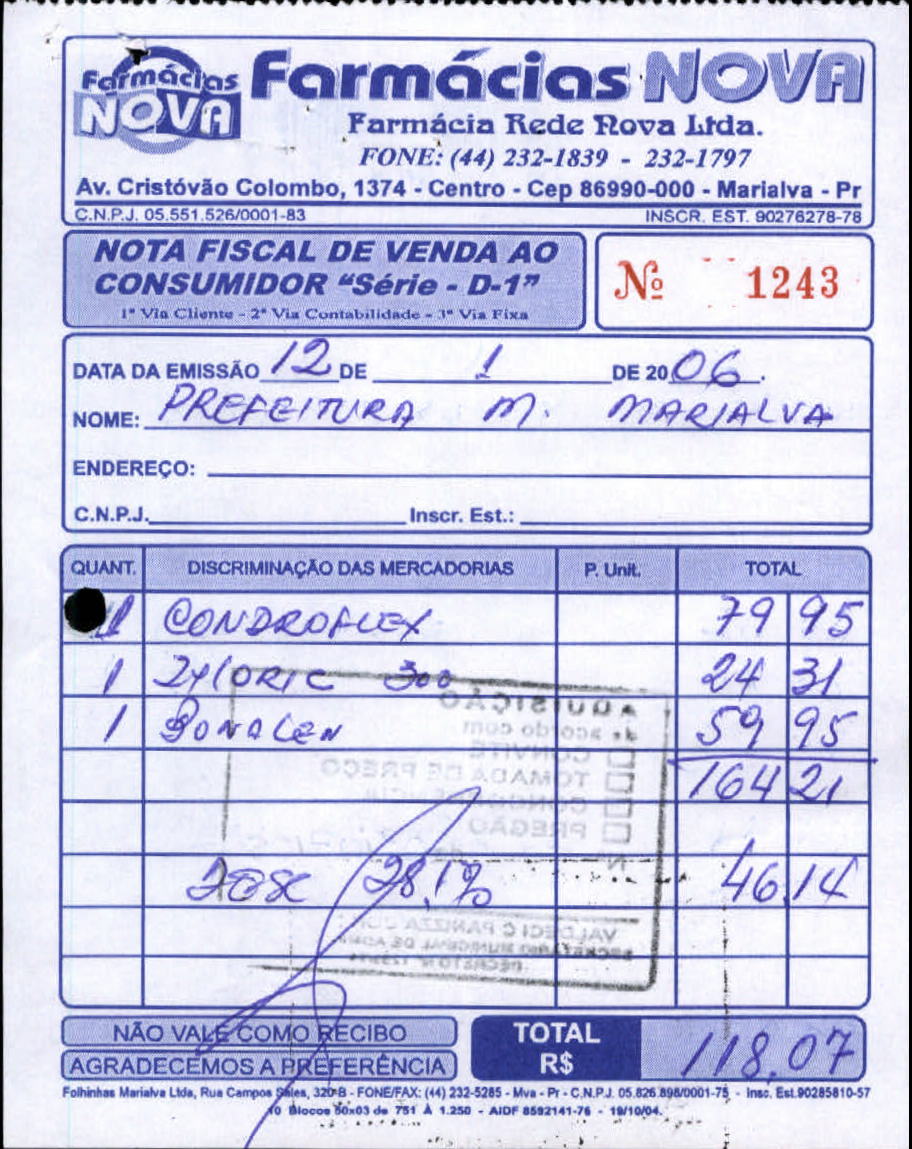 Farmácias NOVA
Farmácias NOVA
Farmácia Rede Nova Ltda.
FONE: (44) 232-1839 - 232-1797
Av. Cristóvão Colombo, 1374 - Centro - Cep 86990-000 - Marialva - Pr
C.N.P.J. 05.551.526/0001-83 INSCR. EST. 90276278-78
NOTA FISCAL DE VENDA AO
CONSUMIDOR "Série - D-1"
1ª Via Cliente - 2ª Via Contabilidade - 3ª Via Fixa
Nº 1243
DATA DA EMISSÃO 12 DE 1 DE 2006.
NOME: PREFEITURA M. MARIALVA
ENDEREÇO:
C.N.P.J. Inscr. Est.:
QUANT. DISCRIMINAÇÃO DAS MERCADORIAS P. Unit. TOTAL
1 CONDROFLEX 79 95
1 ZYLORIC 300 24 31
1 BONALEN 59 95
164 21
DESC 28,1% 46,14
AQUISIÇÃO
de acordo com
CONVITE
TOMADA DE PREÇO
PREGÃO
Nº
SECRETARIO MUNICIPAL DE
NÃO VALE COMO RECIBO
AGRADECEMOS A PREFERÊNCIA
TOTAL
R$ 118,07
Folhinhas Marialva Ltda, Rua Campos Sales, 320-B - FONE/FAX: (44) 232-5285 - Mva - Pr - C.N.P.J. 05.826.898/0001-75 - Insc. Est.90285810-57
10 Blocos 50x03 de 751 À 1.250 - AIDF 8592141-76 - 19/10/04.